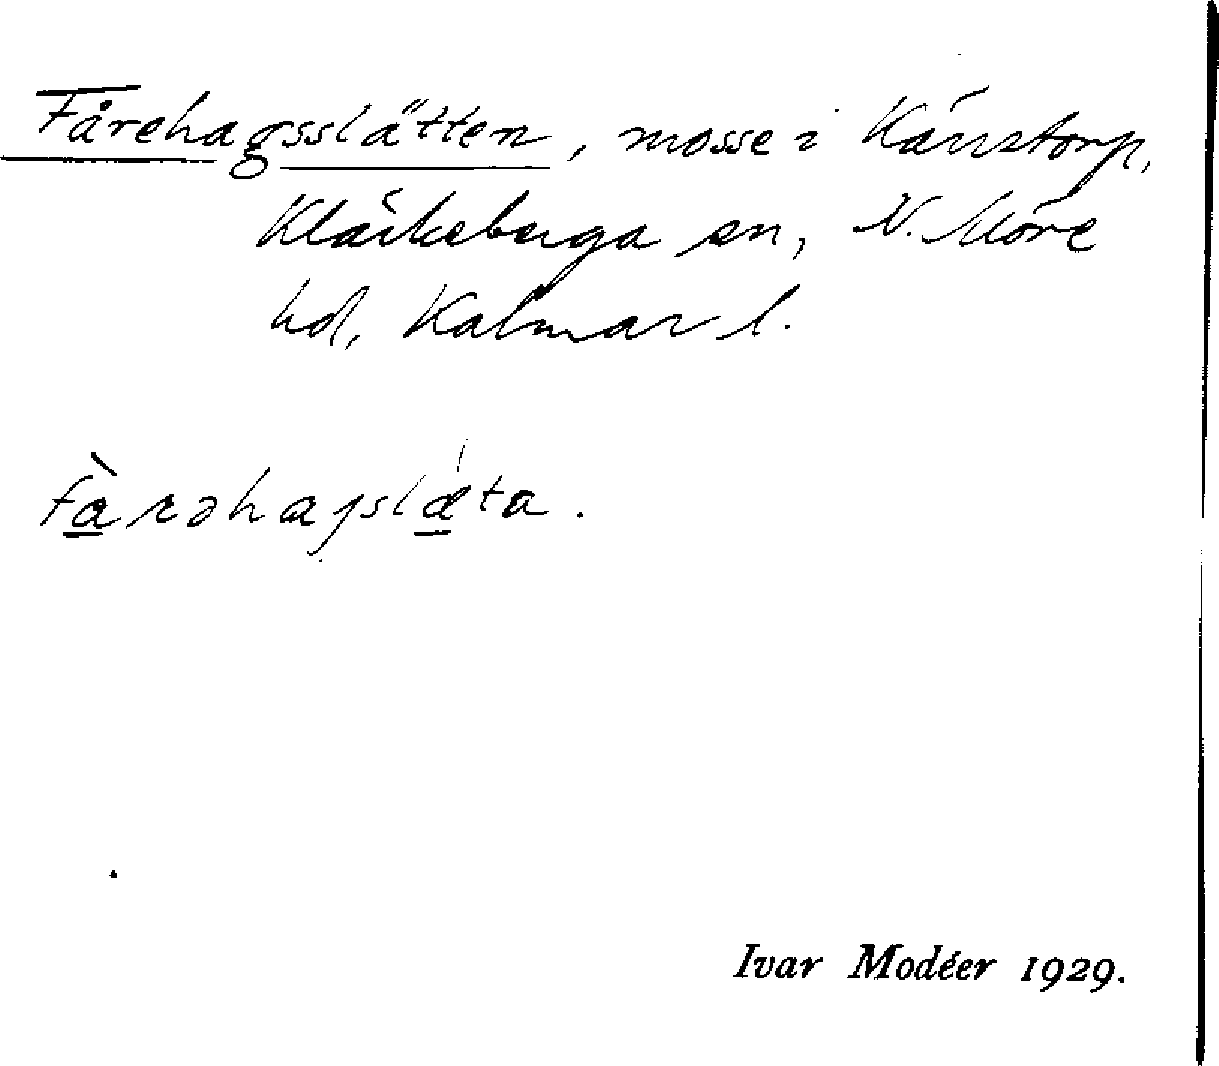 Fårehagsslätten, mosse i Känstorp,
Kläckeberga sn, N. Möre
hd, Kalmar l.
fàrəhaɡslǽta.
Ivar Modéer 1929.